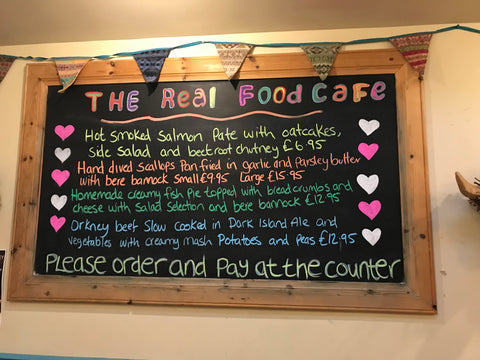 THE Real Food Cafe
Hot smoked Salmon Pate with oatcakes,
side salad and beetroot chutney £6.95
Hand dived Scallops Pan fried in garlic and parsley butter
with bere bannock Small £9.95 Large £15.95
Homemade creamy fish Pie topped with breadcrumbs and
cheese with Salad Selection and bere bannock £12.95
Orkney beef Slow cooked in Dark Island Ale and
vegetables with creamy mash Potatoes and Peas £12.95
Please order and Pay at the counter